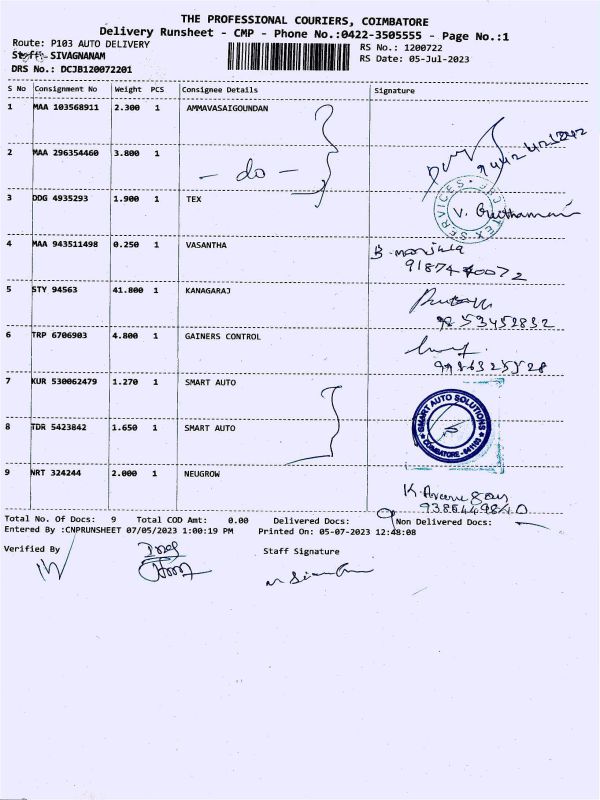 THE PROFESSIONAL COURIERS, COIMBATORE
Delivery Runsheet - CMP - Phone No.:0422-3505555 - Page No.:1
Route: P103 AUTO DELIVERY
RS No.: 1200722
Staff:- SIVAGNANAM
RS Date: 05-Jul-2023
DRS No.: DCJB120072201
S No Consignment No Weight PCS Consignee Details Signature
1 MAA 103568911 2.300 1 AMMAVASAIGOUNDAN
2 MAA 296354460 3.800 1
- do -
3 DDG 4935293 1.900 1 TEX
4 MAA 943511498 0.250 1 VASANTHA
5 STY 94563 41.800 1 KANAGARAJ
6 TRP 6706903 4.800 1 GAINERS CONTROL
7 KUR 530062479 1.270 1 SMART AUTO
SMART AUTO SOLUTIONS
COIMBATORE
8 TDR 5423842 1.650 1 SMART AUTO
9 NRT 324244 2.000 1 NEUGROW
Total No. Of Docs: 9 Total COD Amt: 0.00 Delivered Docs: 9 Non Delivered Docs: -
Entered By :CNPRUNSHEET 07/05/2023 1:00:19 PM Printed On: 05-07-2023 12:48:08
Verified By Staff Signature